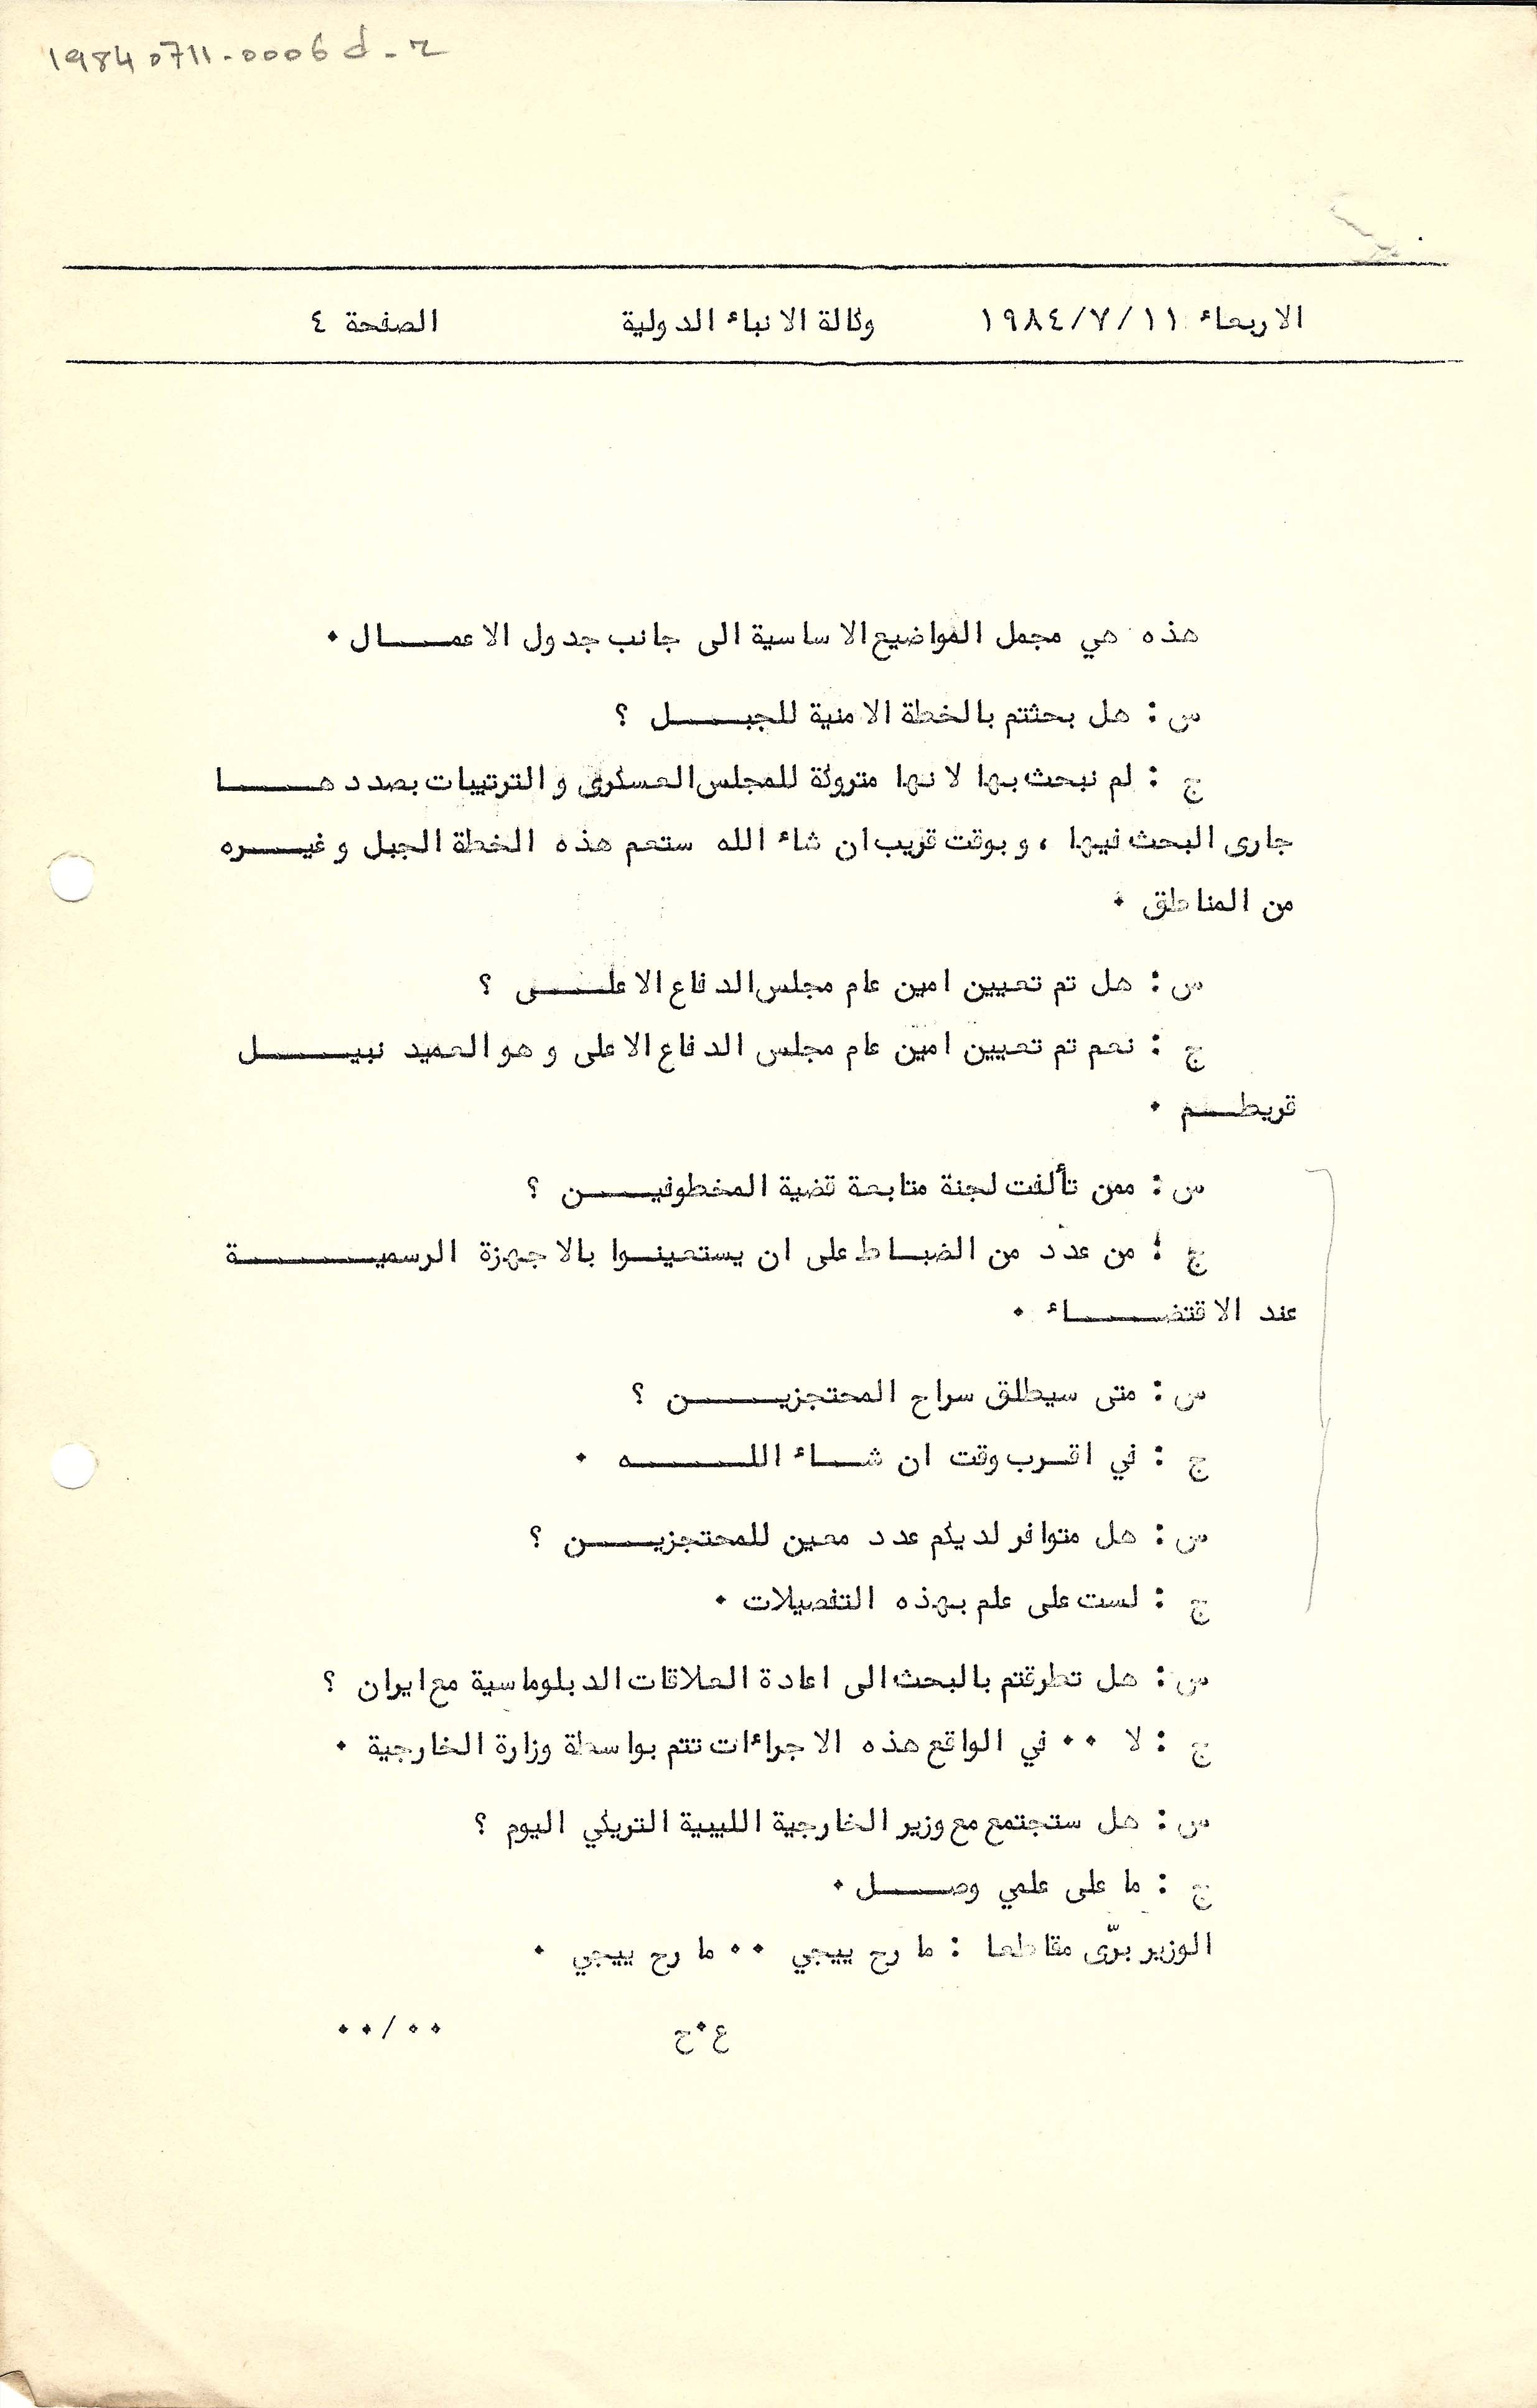 19840711-0006 d-2
الاربعاء ١٩٨٤/٧/١١ وكالة الانباء الدولية الصفحة ٤
هذه هي مجمل المواضيع الاساسية الى جانب جدول الاعمـــال .
س : هل بحثتم بالخطة الامنية للجبـــل ؟
ج : لم نبحث بها لانها متروكة للمجلس العسكرى والترتيبات بصددهـــا
جارى البحث فيها ، وبوقت قريب ان شاء الله ستعم هذه الخطة الجبل وغيـــره
من المناطق .
س : هل تم تعيين امين عام مجلس الدفاع الاعلـــى ؟
ج : نعم تم تعيين امين عام مجلس الدفاع الاعلى وهو العميد نبيـــل
قريطـــم .
س : ممن تألفت لجنة متابعة قضية المخطوفيـــن ؟
ج : من عدد من الضبـاط على ان يستعينـوا بالاجهزة الرسميـــة
عند الاقتضـــاء .
س : متى سيطلق سراح المحتجزيـــن ؟
ج : في اقـرب وقت ان شـاء اللـــه .
س : هل متوافر لديكم عدد معين للمحتجزيـــن ؟
ج : لست على علم بهذه التفصيلات .
س : هل تطرقتم بالبحث الى اعادة العلاقات الدبلوماسية مع ايران ؟
ج : لا .. في الواقع هذه الاجراءات تتم بواسطة وزارة الخارجية .
س : هل ستجتمع مع وزير الخارجية الليبية التريكي اليوم ؟
ج : ما على علمي وصـــل .
الوزير برّى مقاطعا : ما رح ييجي .. ما رح ييجي .
ع.ح ٠٠/٠٠